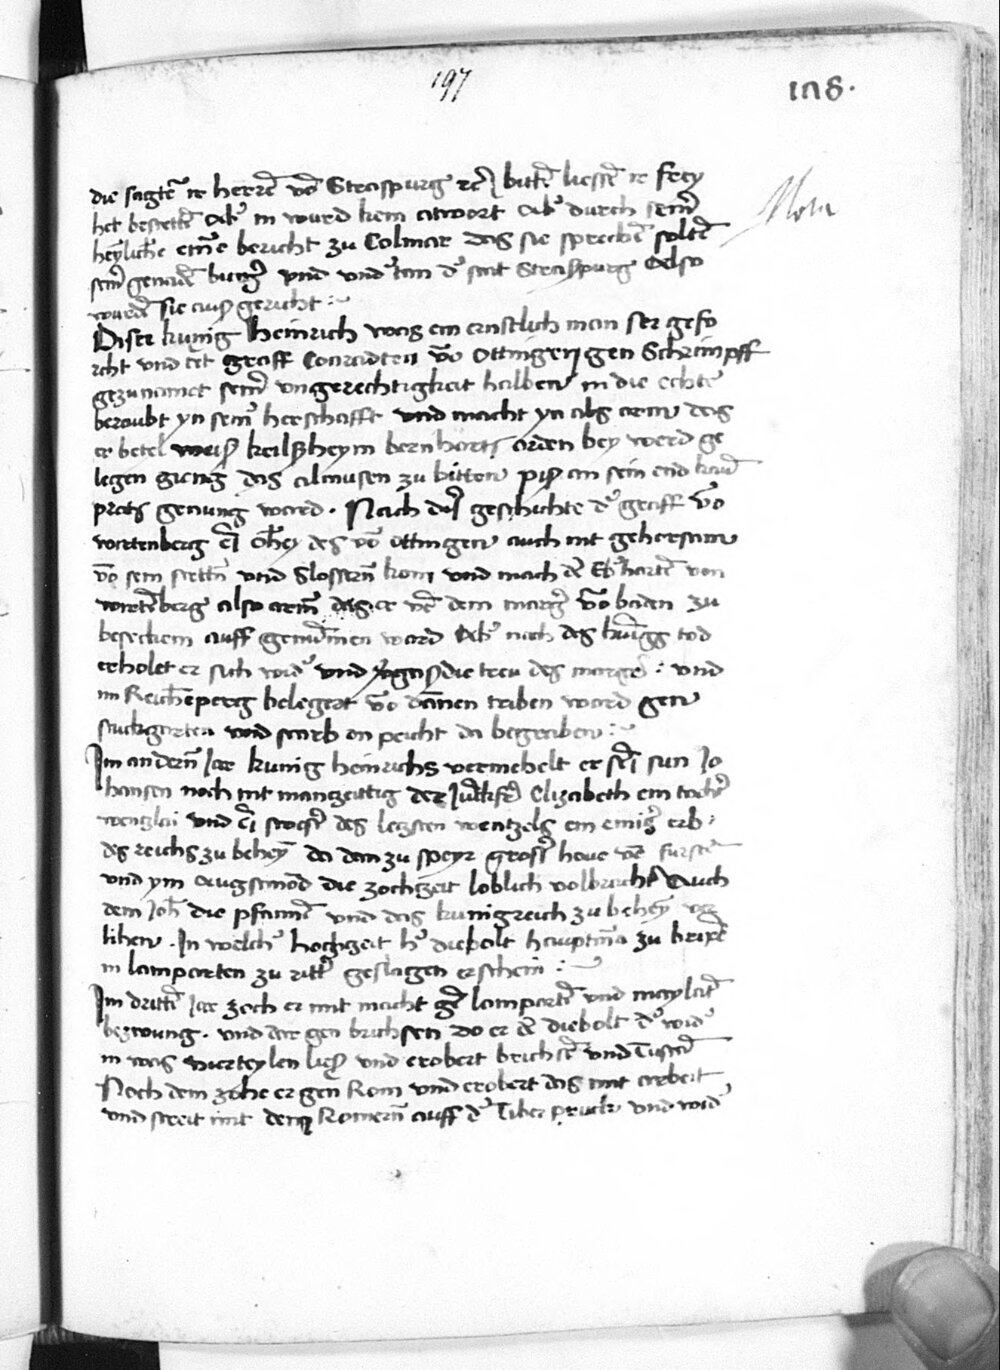 197
108.
Nota
die sagtē ir herrē võ Straspurg ꝛc̄ bittē liessē ir frey
het bestettē Abʼ in wurd kein ātwort Abʼ durch seinē
heỹliche ein̄e bericht zu Colmar das sie sprechē soltē
sein̄ genadē kunig und undʼtan dʼ stat Straspurg Also
wurdē sie auß gericht :~
Diser kunig Heinrich was ein ernstlich man ser gefo
rcht und tet graff Conradten võ Ottingen gen Schrimpff
gezunamet sein̄ ungerechtigkeit halben in die echte
beraubt yn seinʼ herschafft und macht yn als arm das
er betel weiß keißheym bernharts orden bey werd ge
legen gieng das almusen zu bitten piß an sein end kaū
prots genung ward . Nach disʼ geschichte dʼ graff võ
wirtenberg ein ōhey des võ Ottingen auch mit gehorsam
võ sein stettn̄ und Slossern̄ kom und mach dē Ebʼhartē von
wirtēberg also arm̄ das er vō dem marg võ baden zu
beseckein auff genūmen ward Abʼ nach des kunigs tod
erholet er sich widʼ und die treu des margē : und
im Reichēperg belegert võ dannen triben ward gen
stuckgarten und starb on peicht da begraben :~
Im andern̄ Jar kunig heinrichs vermehelt er sein sun Jo
hansen noch nit mantzeittig der Juckfrʼ Elizabeth ein tochtʼ
wenzlai und ein swestʼ des letzsten wentzels ein einigʼ erb
des reichs zu behey̅ da dan zu speyr grossʼ hove vō furstē
und ym Augstmōd die zochzeit loblich volbracht Auch
dem Joh̄ die pfannē und das kunigreich zu behey̅ ver
lihen . In welchʼ hochzeit hʼ diebolt hauptmā zu brixē
in lamparten zu rittʼ geslagen erschein :~
Im drittē Jar zoch er mit macht gē lampartē und maylatē
bezwung . und dar gen brichsen do er dē diebolt dʼ widʼ
in was vierteylen ließ und erobert brichsē und Tuscā
Noch dem zohe er gen Rom und erobert das mit arbeit
und streit mit den Romern̄ auff dʼ Tiber pruck und widʼ